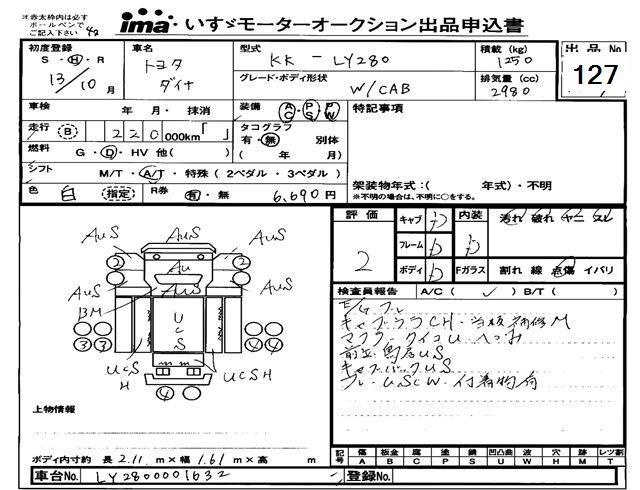 ※赤太枠内は必ず
ボールペンで
ご記入下さい
ima いすゞモーターオークション出品申込書
初度登録 S・H・R 13/10月
車名 トヨタ ダイナ
型式 KK-LY280
積載(kg) 1250
出品No 127
グレード・ボディ形状 W/CAB
排気量(cc) 2980
車検 年 月・ 抹消
装備 AC・PS・PW
特記事項
走行 B 220 000km「 」
タコグラフ 有・無 別体 ( 年 月)
燃料 G・D・HV 他( )
シフト M/T・A/T・特殊(2ペダル・3ペダル)
架装物年式:( 年式)・不明
※不明の場合は、不明に○をする。
色 白 (指定) R券 有・無 6,690円
評価 2
キャブ D 内装 D 汚れ 破れ ヤニ スレ
フレーム D
ボディ D Fガラス 割れ 線 点傷 イバリ
検査員報告 A/C( ✓ ) B/T( )
AuS AuS AuS
2 Au 2
AuS AuS AuS
BM UCS
3 3 4 4
UCS H mm UCSH
4
E/G
キャブ CH・ 補修M
マフラー
US
キャブバックUS
上物情報
ボディ内寸約 長 2.11 m×幅 1.61 m×高 m
記号 傷A 板金B 腐C 塗P 錆S 凹凸曲U 波W 穴H 跡M レツ割T
車台No. LY2800001632
登録No.